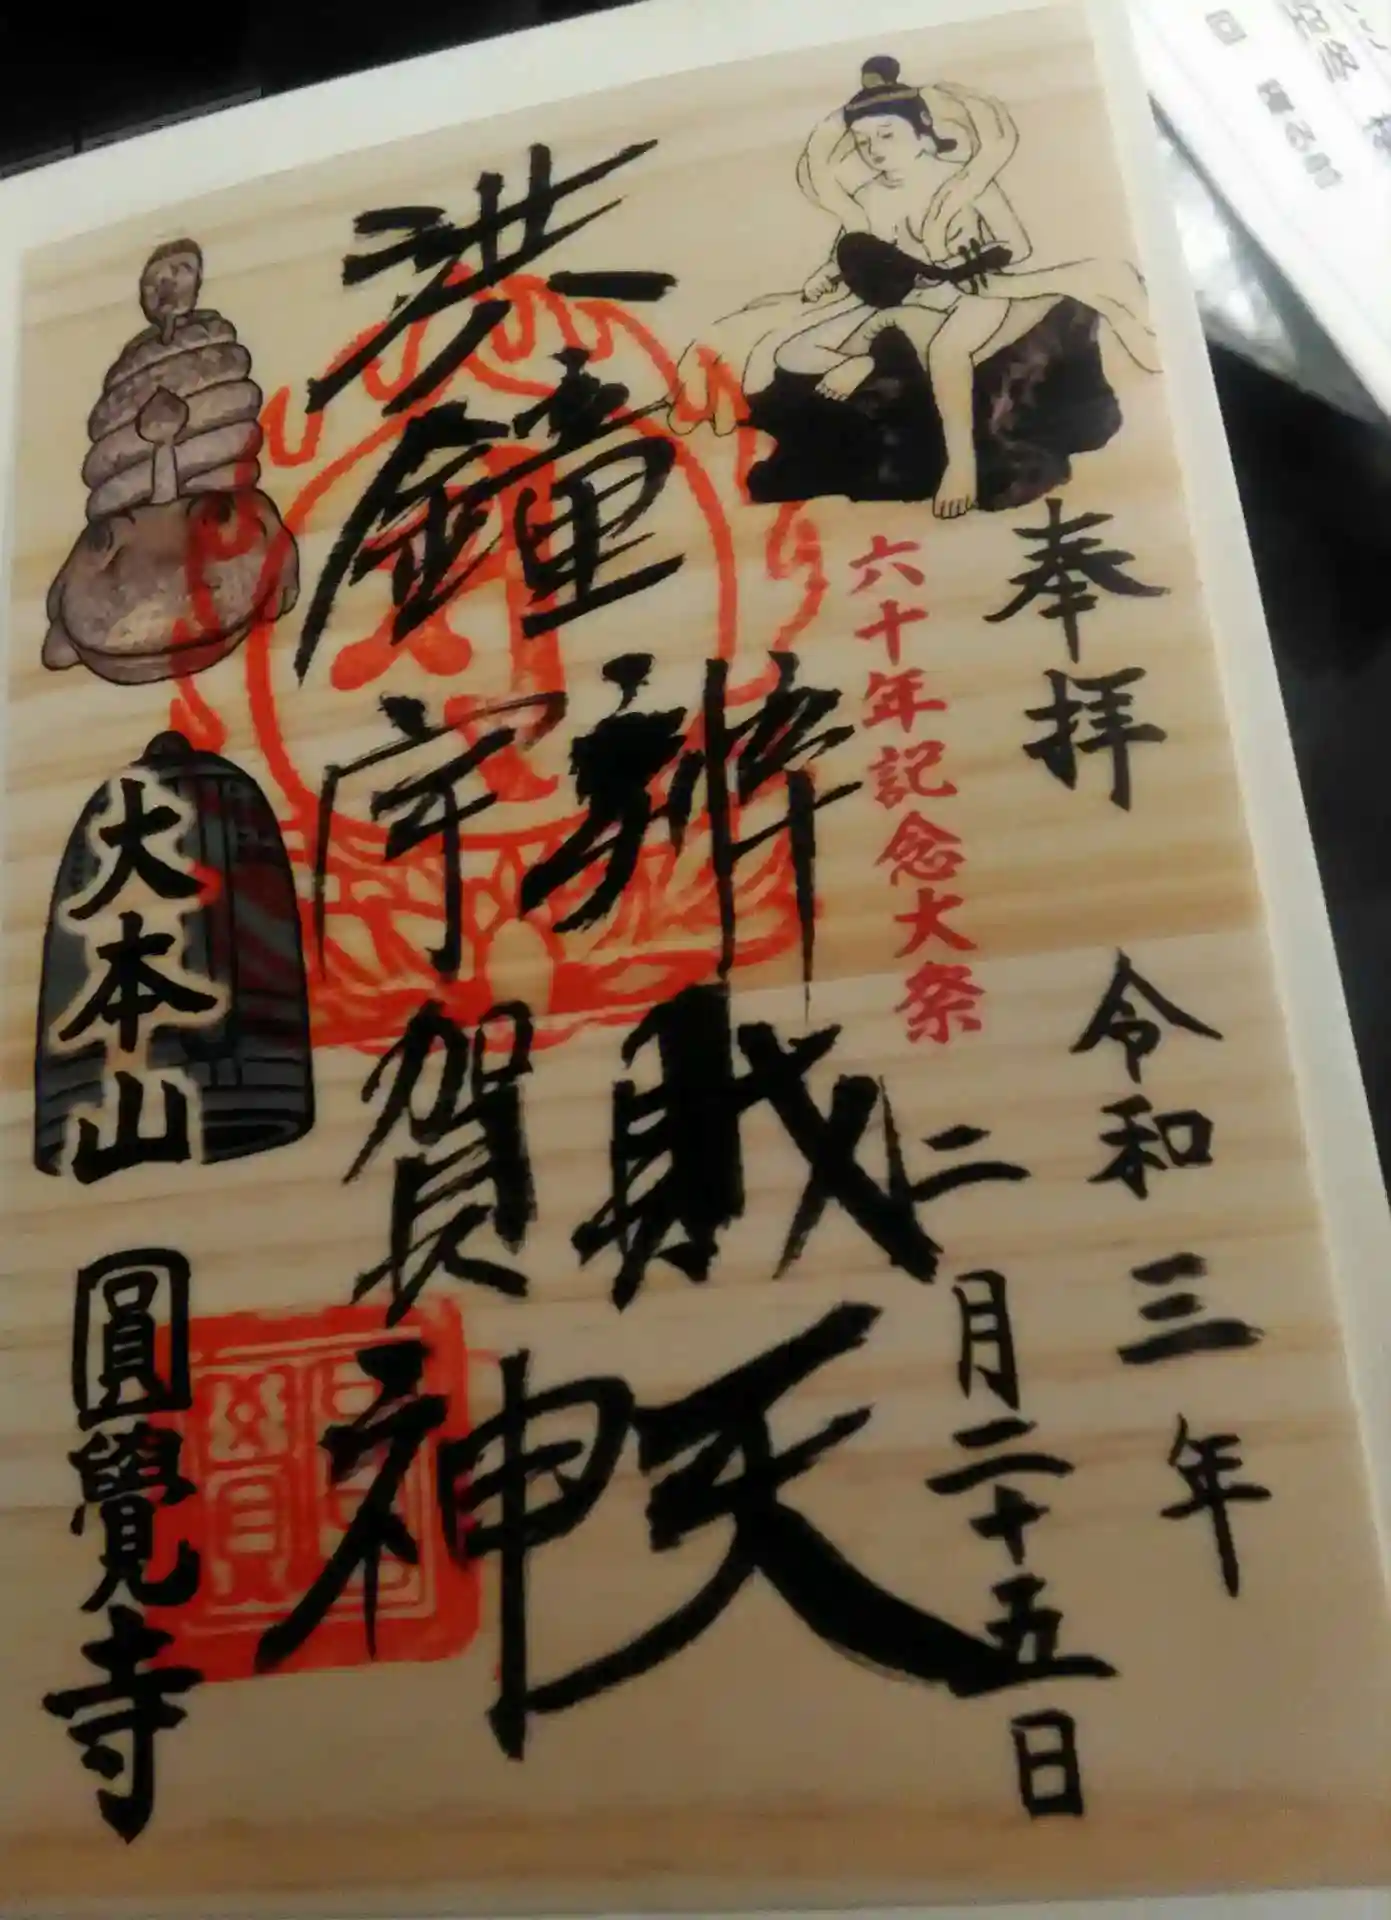 奉拝
令和三年
二月二十五日
六十年記念大祭
洪鐘
辨財天
宇賀神
大本山
圓覺寺